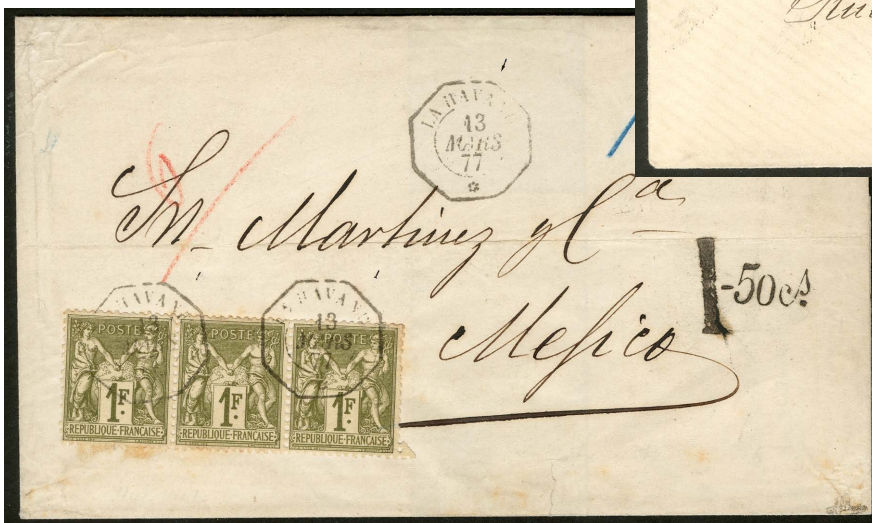 LA HAVANE
13
MARS
77
M. Martinez y Cᵃ
1-50 cs.
Mejico
LA HAVANE
13
LA HAVANE
13
MARS
77
POSTE
1F
REPUBLIQUE·FRANCAISE
POSTE
1F
REPUBLIQUE·FRANCAISE
POSTE
1F
REPUBLIQUE·FRANCAISE